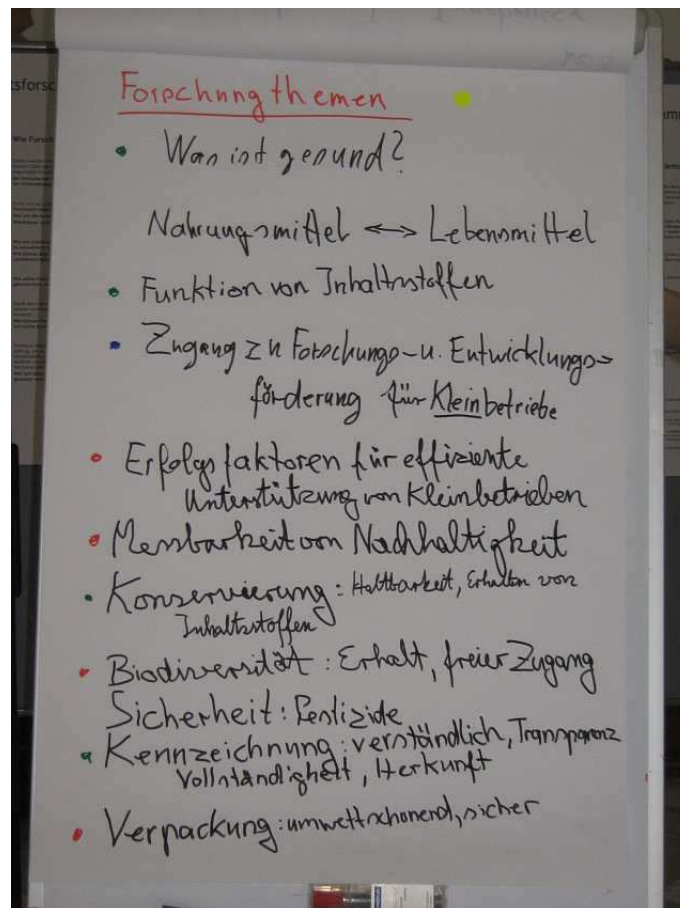 tsforsc
Wie Forsch
Forschungthemen
• Was ist gesund?
Nahrungsmittel <-> Lebensmittel
• Funktion von Inhaltsstoffen
• Zugang zu Forschungs- u. Entwicklungs=
förderung für Kleinbetriebe
• Erfolgsfaktoren für effiziente
Unterstützung von Kleinbetrieben
• Messbarkeit von Nachhaltigkeit
• Konservierung: Haltbarkeit, Erhalten von
Inhaltsstoffen
• Biodiversität: Erhalt, freier Zugang
Sicherheit: Pestizide
• Kennzeichnung: verständlich, Transparenz
Vollständigkeit, Herkunft
• Verpackung: umweltschonend, sicher